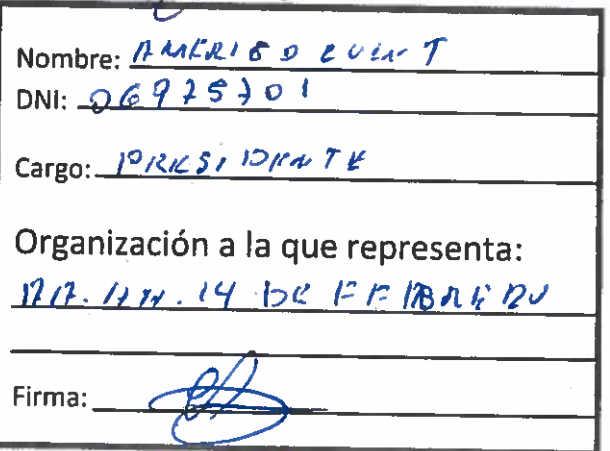 Nombre: AMERICO
DNI: 06975701
Cargo: PRESIDENTE
Organización a la que representa:
14 DE FEBRERO
Firma: